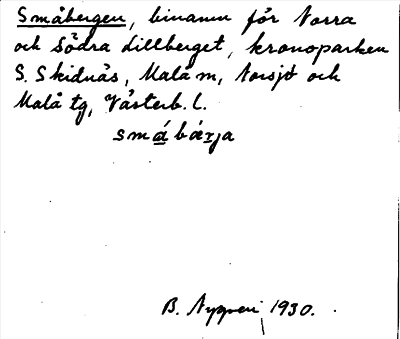 Småbergen, binamn för Norra
och Södra Lillberget, kronoparken
S. Skidnäs, Malå m, Norsjö och
Malå tg, Västerb. l.
småbärja
B. 1930.